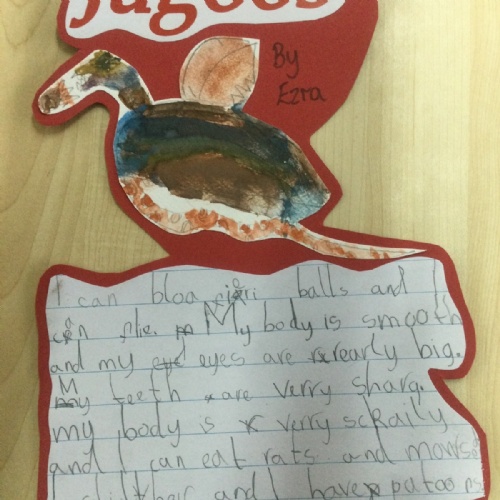 Jugoos
By
Ezra
I can bloa firi balls and I
can flie. My body is smooth
and my eyes are rearly big.
My teeth are verry sharq.
my body is verry scraily
and I can eat rats and mows.
and I have